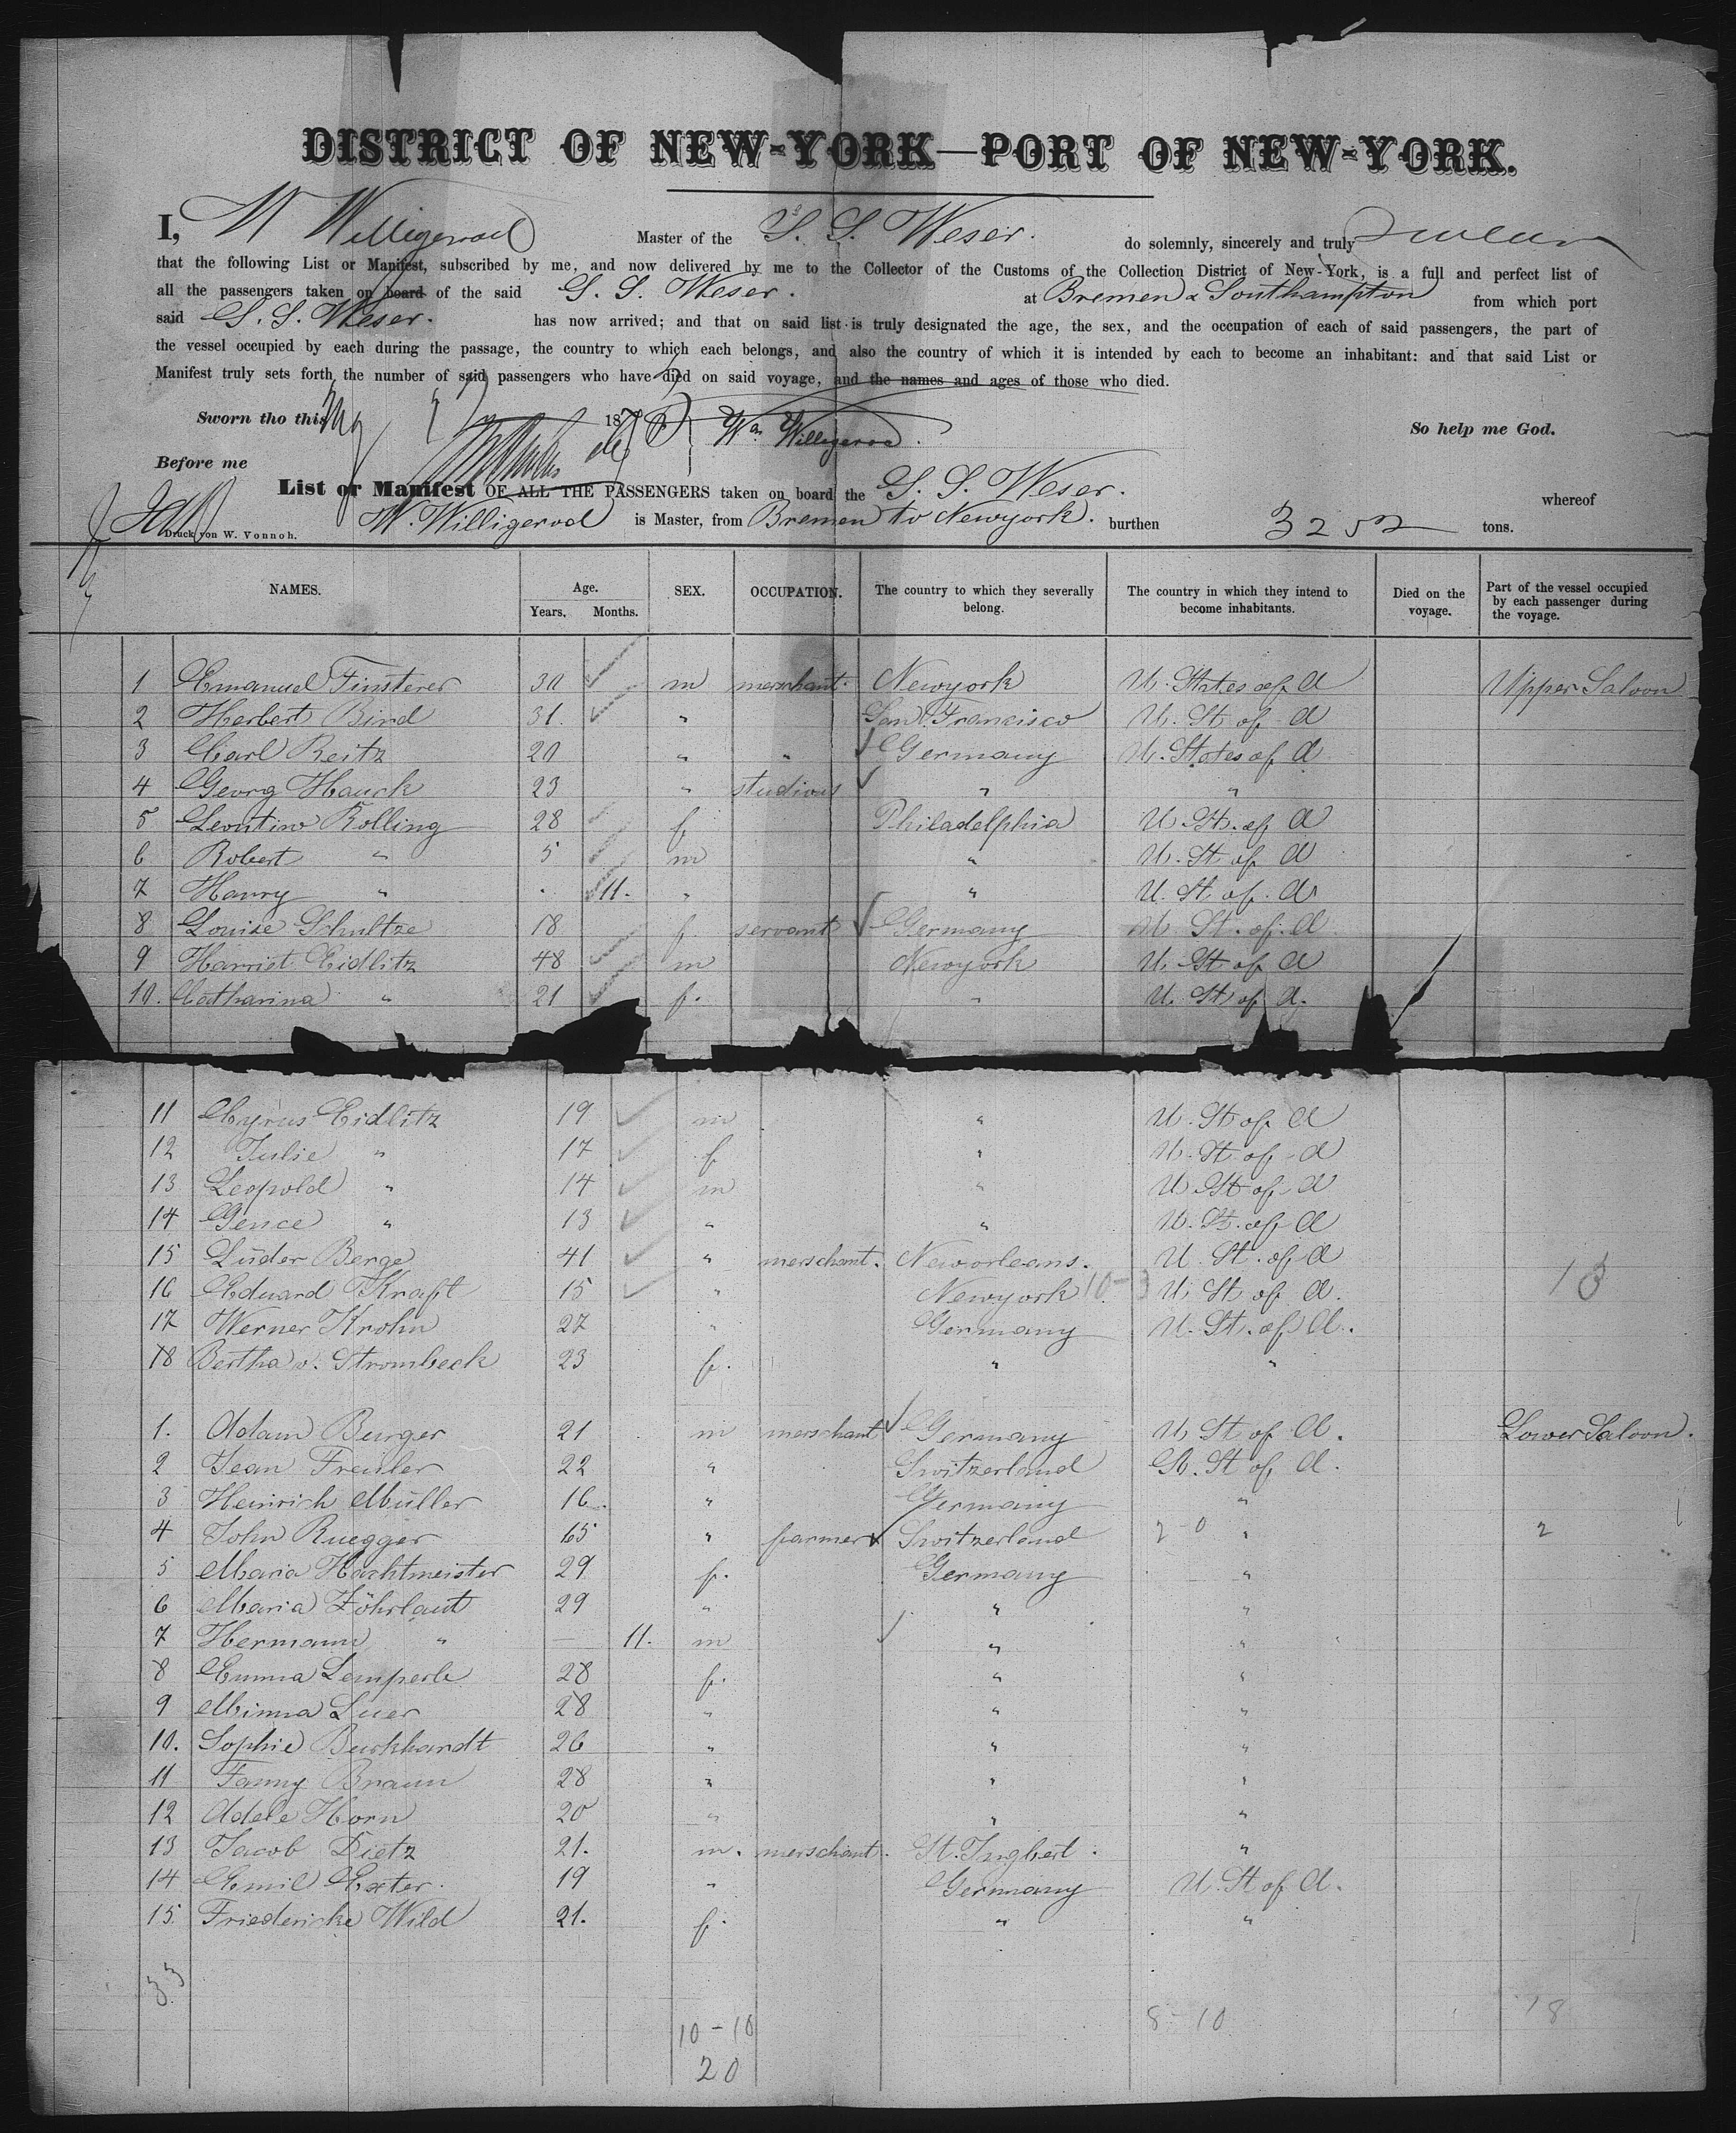 DISTRICT OF NEW-YORK—PORT OF NEW-YORK.
I, W Willigerod Master of the S. S. Weser. do solemnly, sincerely and truly swear
that the following List or Manifest, subscribed by me, and now delivered by me to the Collector of the Customs of the Collection District of New-York, is a full and perfect list of
all the passengers taken on board of the said S. S. Weser. at Bremen & Southampton from which port
said S. S. Weser. has now arrived; and that on said list is truly designated the age, the sex, and the occupation of each of said passengers, the part of
the vessel occupied by each during the passage, the country to which each belongs, and also the country of which it is intended by each to become an inhabitant: and that said List or
Manifest truly sets forth the number of said passengers who have died on said voyage, and the names and ages of those who died.
Sworn tho this 187 Wm Willigerod. So help me God.
Before me
List or Manifest OF ALL THE PASSENGERS taken on board the S. S. Weser. whereof
W. Willigerod is Master, from Bremen to Newyork. burthen 3252 tons.
Druck von W. Vonnoh.
NAMES. Age. Years. Months. SEX. OCCUPATION. The country to which they severally belong. The country in which they intend to become inhabitants. Died on the voyage. Part of the vessel occupied by each passenger during the voyage.
1 Emanuel Finsterer 30 m merschant. Newyork U. States of A Upper Saloon
2 Herbert Bird 31. " San Francisco U. St of A
3 Carl Reitz 20 " " Germany U. States of A
4 Georg Hauck 23 " studious " "
5 Leontine Rolling 28 f Philadelphia U. St. of A
6 Robert " 5 m " U. St of A
7 Hanry " . 11. " " U. St of A
8 Louise Schultze 18 f servant Germany U. St. of. A
9 Harriet Eidlitz 48 m Newyork U. St of A
10. Catharina " 21 f. " U. St of A.
11 Cyrus Eidlitz 19 m " U. St of A
12 Julie " 17 f " U. St of A
13 Leopold " 14 m " U. St of A
14 Gence " 13 " " U. St. of A
15 Lüder Berge 41 " merschant. Neworleans. U. St. of A
16 Eduard Kraft 15 " Newyork 10-3 U. St of A. 13
17 Werner Krohn 27 " Germany U. St. of A.
18 Bertha v. Strombeck 23 f. " "
1. Adam Burger 21 m merschant Germany U. St of A. Lower Saloon.
2 Jean Freuler 22 " Switzerland U. St of A.
3 Heinrich Müller 16. " Germany "
4 John Ruegger 65 " farmer Switzerland 2-0 " 2
5 Maria Hachtmeister 29 f. Germany "
6 Maria Föhrlaut 29 " " "
7 Hermann " — 11. m " "
8 Emma Lemperle 28 f. " "
9 Minna Luer 28 " " "
10. Sophie Burkhardt 26 " " "
11 Fanny Braun 28 " " "
12 Adele Horn 20 " " "
13 Jacob Dietz 21. m. merschant. St. Ingbert. "
14 Emil Exter. 19 " Germany U. St of A.
15. Friedericke Wild 21. f. " "
33
10-10 8-10 18
20